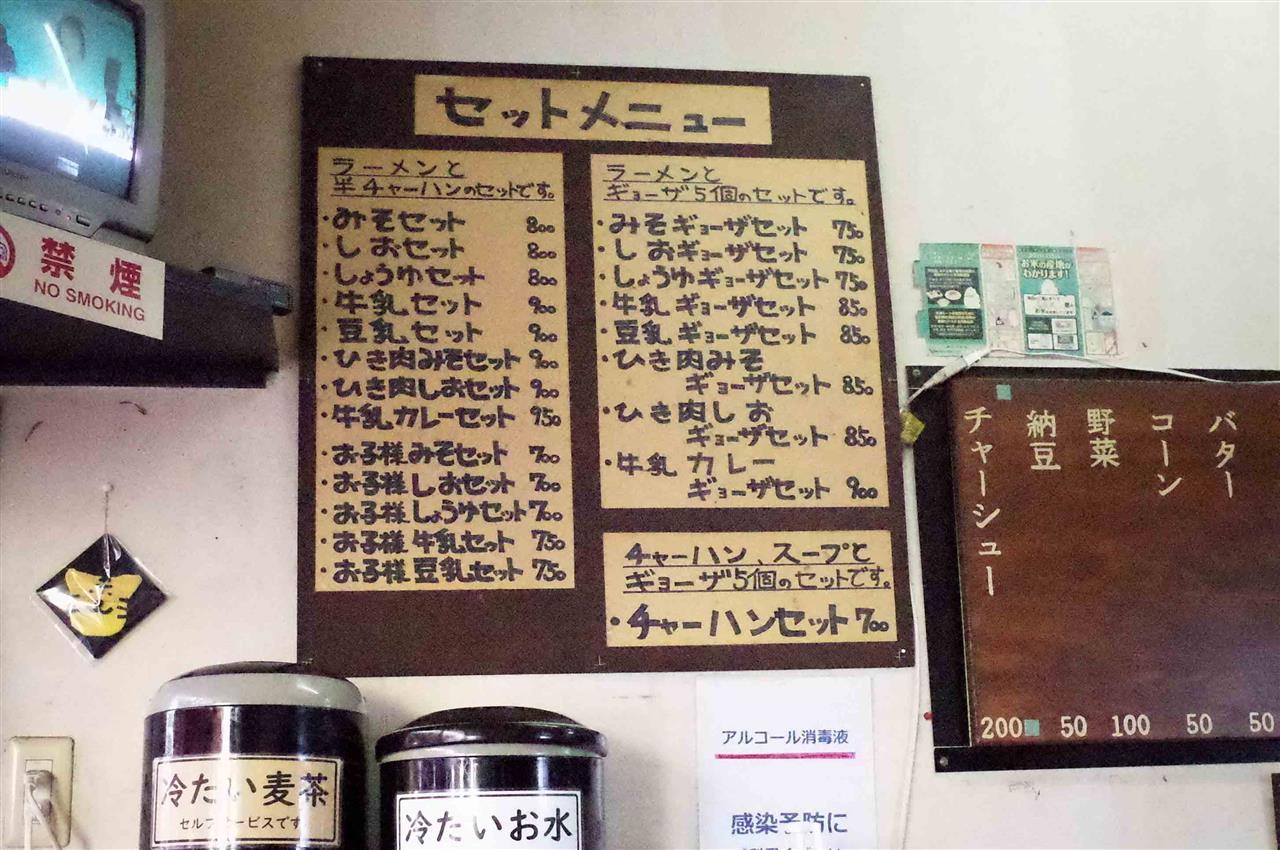 セットメニュー
ラーメンと
半チャーハンのセットです。
・みそセット 800
・しおセット 800
・しょうゆセット 800
・牛乳セット 900
・豆乳セット 900
・ひき肉みそセット 900
・ひき肉しおセット 900
・牛乳カレーセット 950
・お子様みそセット 700
・お子様しおセット 700
・お子様しょうゆセット 700
・お子様牛乳セット 750
・お子様豆乳セット 750
ラーメンと
ギョーザ5個のセットです。
・みそギョーザセット 750
・しおギョーザセット 750
・しょうゆギョーザセット 750
・牛乳ギョーザセット 850
・豆乳ギョーザセット 850
・ひき肉みそ
ギョーザセット 850
・ひき肉しお
ギョーザセット 850
・牛乳カレー
ギョーザセット 900
チャーハン、スープと
ギョーザ5個のセットです。
・チャーハンセット 700
禁煙
NO SMOKING
お米の産地が
わかります!
バター 50
コーン 50
野菜 100
納豆 50
チャーシュー 200
冷たい麦茶
セルフサービスです
冷たいお水
アルコール消毒液
感染予防に